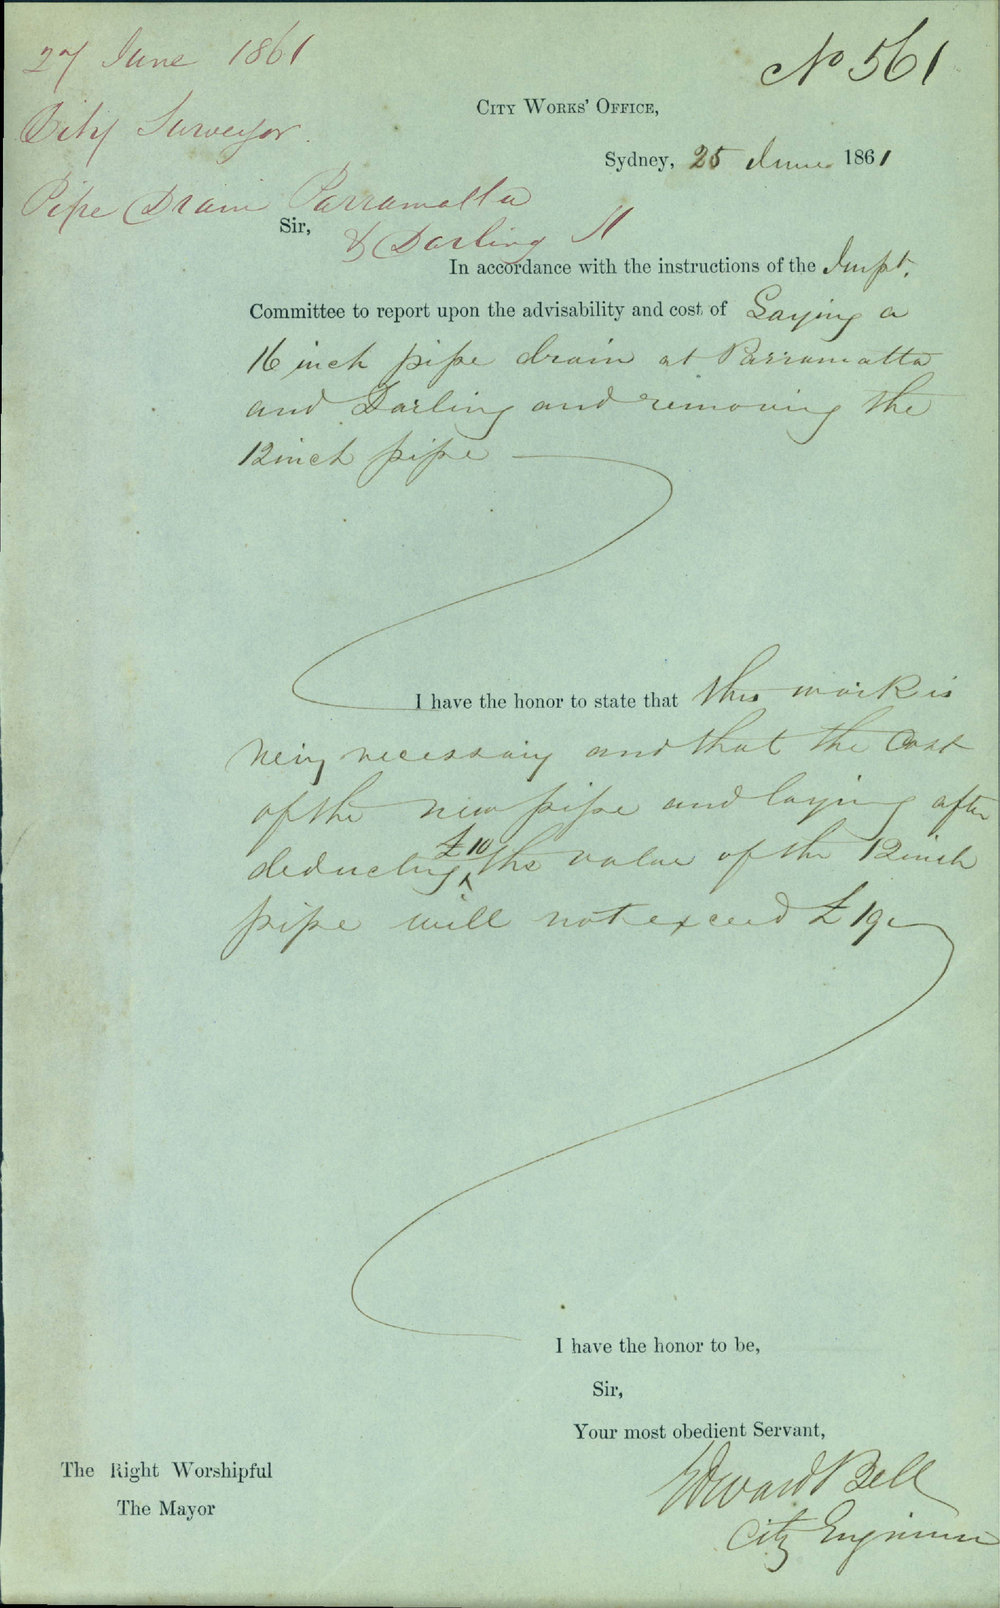 27 June 1861
No 561
City Surveyor.
City Works' Office,
Sydney, 25 June 1861
Pipe Drain Parramatta
& Darling St
Sir,
In accordance with the instructions of the Impt.
Committee to report upon the advisability and cost of Laying a
16 inch pipe drain at Parramatta
and Darling and removing the
12 inch pipe
I have the honor to state that this work is
very necessary and that the Cost
of the new pipe and laying after
deducting £10 the value of the 12 inch
pipe will not exceed £19
I have the honor to be,
Sir,
Your most obedient Servant,
Edward Bell
City Engineer
The Right Worshipful
The Mayor